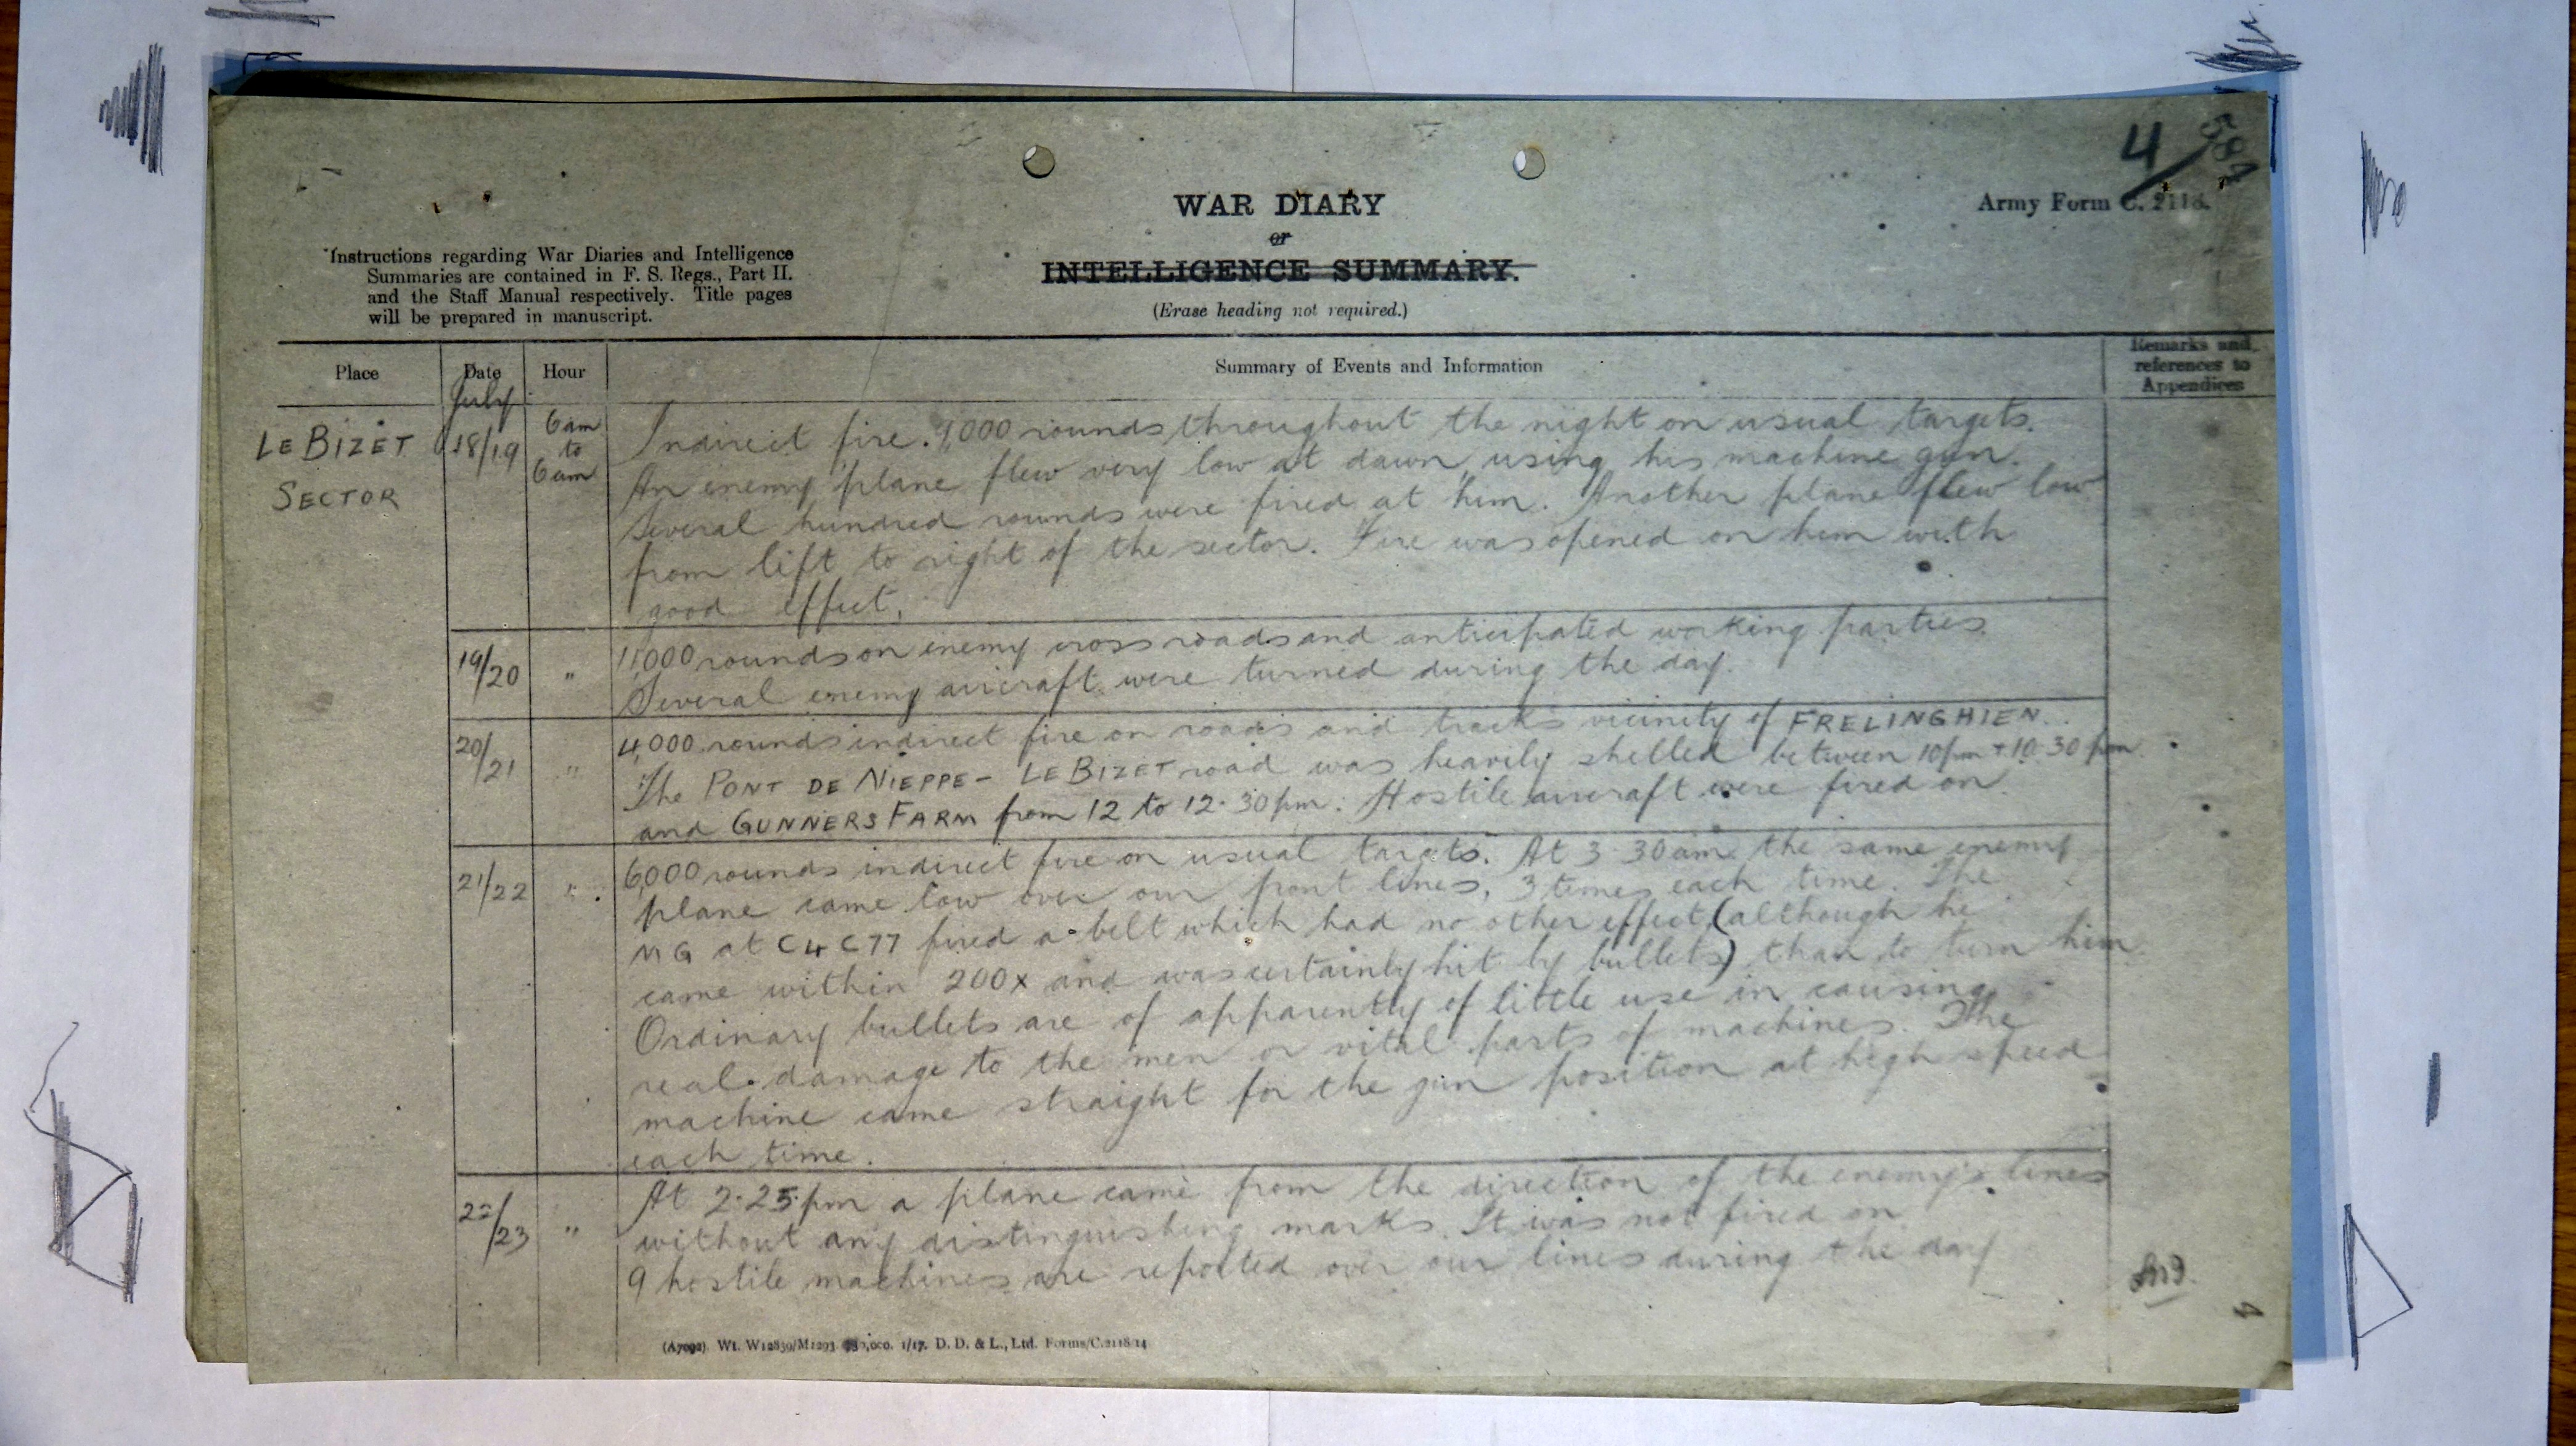 4/ 584
WAR DIARY
Army Form C. 2118.
or
INTELLIGENCE SUMMARY.
(Erase heading not required.)
Instructions regarding War Diaries and Intelligence
Summaries are contained in F. S. Regs., Part II.
and the Staff Manual respectively. Title pages
will be prepared in manuscript.
Place Date Hour Summary of Events and Information Remarks and references to Appendices
July
LE BIZET SECTOR 18/19 6am to 6am
Indirect fire. 9,000 rounds throughout the night on usual targets.
An enemy plane flew very low at dawn using his machine gun.
Several hundred rounds were fired at him. Another plane flew low
from left to right of the sector. Fire was opened on him with
good effect.
19/20 " 11,000 rounds on enemy cross roads and anticipated working parties.
Several enemy aircraft were turned during the day.
20/21 " 4,000 rounds indirect fire on roads and tracks vicinity of FRELINGHIEN.
The PONT DE NIEPPE - LE BIZET road was heavily shelled between 10pm + 10.30 pm
and GUNNERS FARM from 12 to 12.30pm. Hostile aircraft were fired on.
21/22 " 6,000 rounds indirect fire on usual targets. At 3.30am the same enemy
plane came low over our front lines, 3 times each time. The
MG at C4C77 fired a belt which had no other effect (although he
came within 200x and was certainly hit by bullets) than to turn him
Ordinary bullets are of apparently of little use in causing
real damage to the men or vital parts of machines. The
machine came straight for the gun position at high speed
each time.
22/23 " At 2.25pm a plane came from the direction of the enemy's lines
without any distinguishing marks. It was not fired on
9 hostile machines are reported over our lines during the day
4
(A7092) Wt. W12839/M1293 750,000. 1/17. D. D. & L., Ltd. Forms/C.2118/14